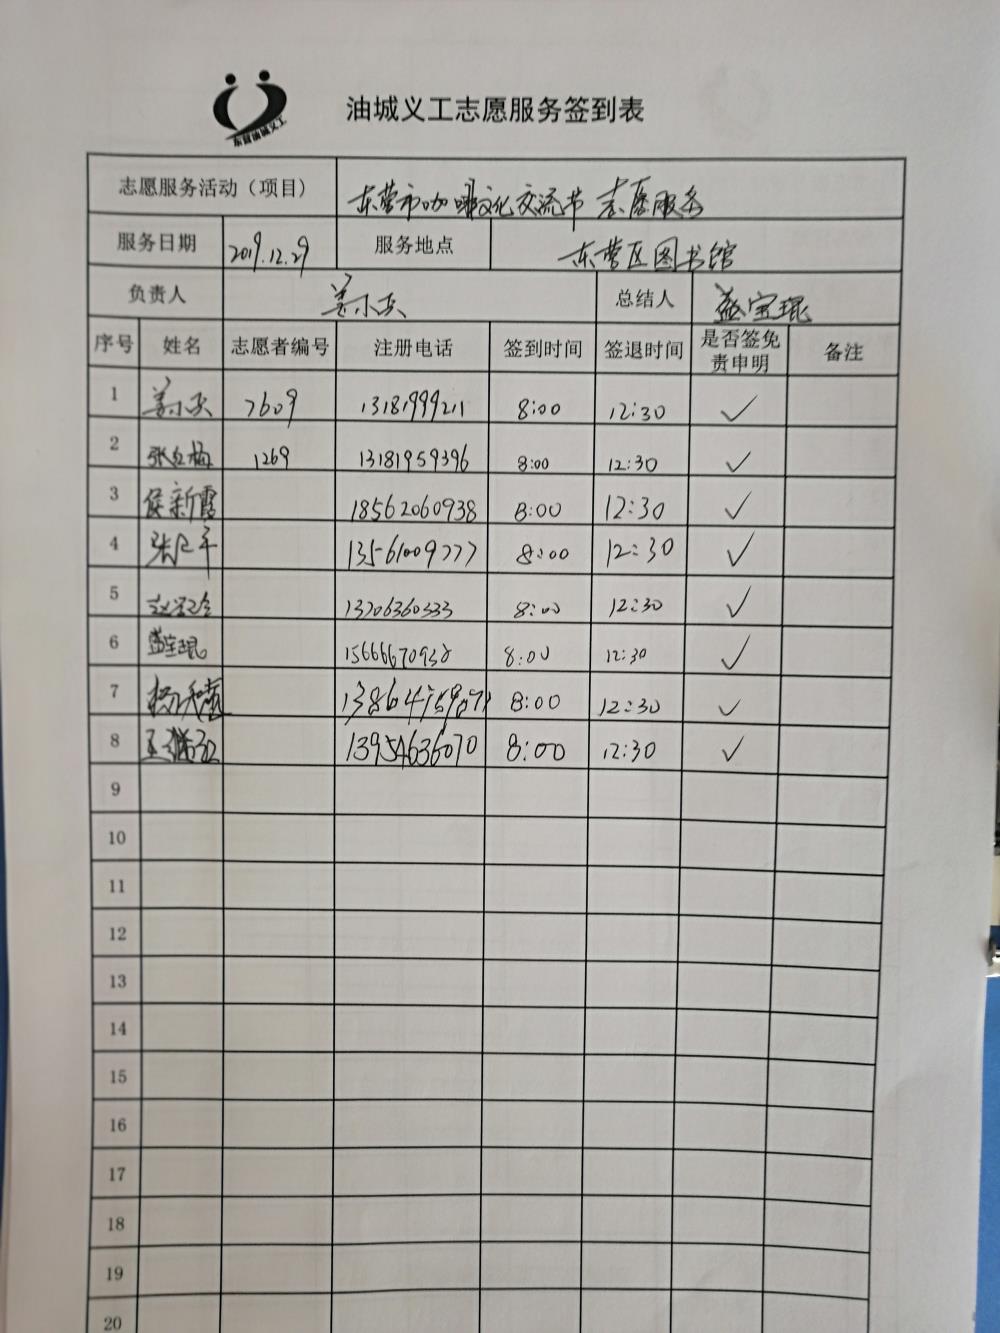 东营油城义工
油城义工志愿服务签到表
志愿服务活动（项目） 东营市咖啡文化交流节 志愿服务
服务日期 2019.12.29 服务地点 东营区图书馆
负责人 姜小兵 总结人 盖宝琨
序号 姓名 志愿者编号 注册电话 签到时间 签退时间 是否签免责申明 备注
1 姜小兵 7609 13181999211 8:00 12:30 ✓
2 张红梅 1269 13181959396 8:00 12:30 ✓
3 侯新霞 18562060938 8:00 12:30 ✓
4 13561009777 8:00 12:30 ✓
5 13706360333 8:00 12:30 ✓
6 盖宝琨 15666670938 8:00 12:30 ✓
7 8:00 12:30 ✓
8 13954636070 8:00 12:30 ✓
9
10
11
12
13
14
15
16
17
18
19
20